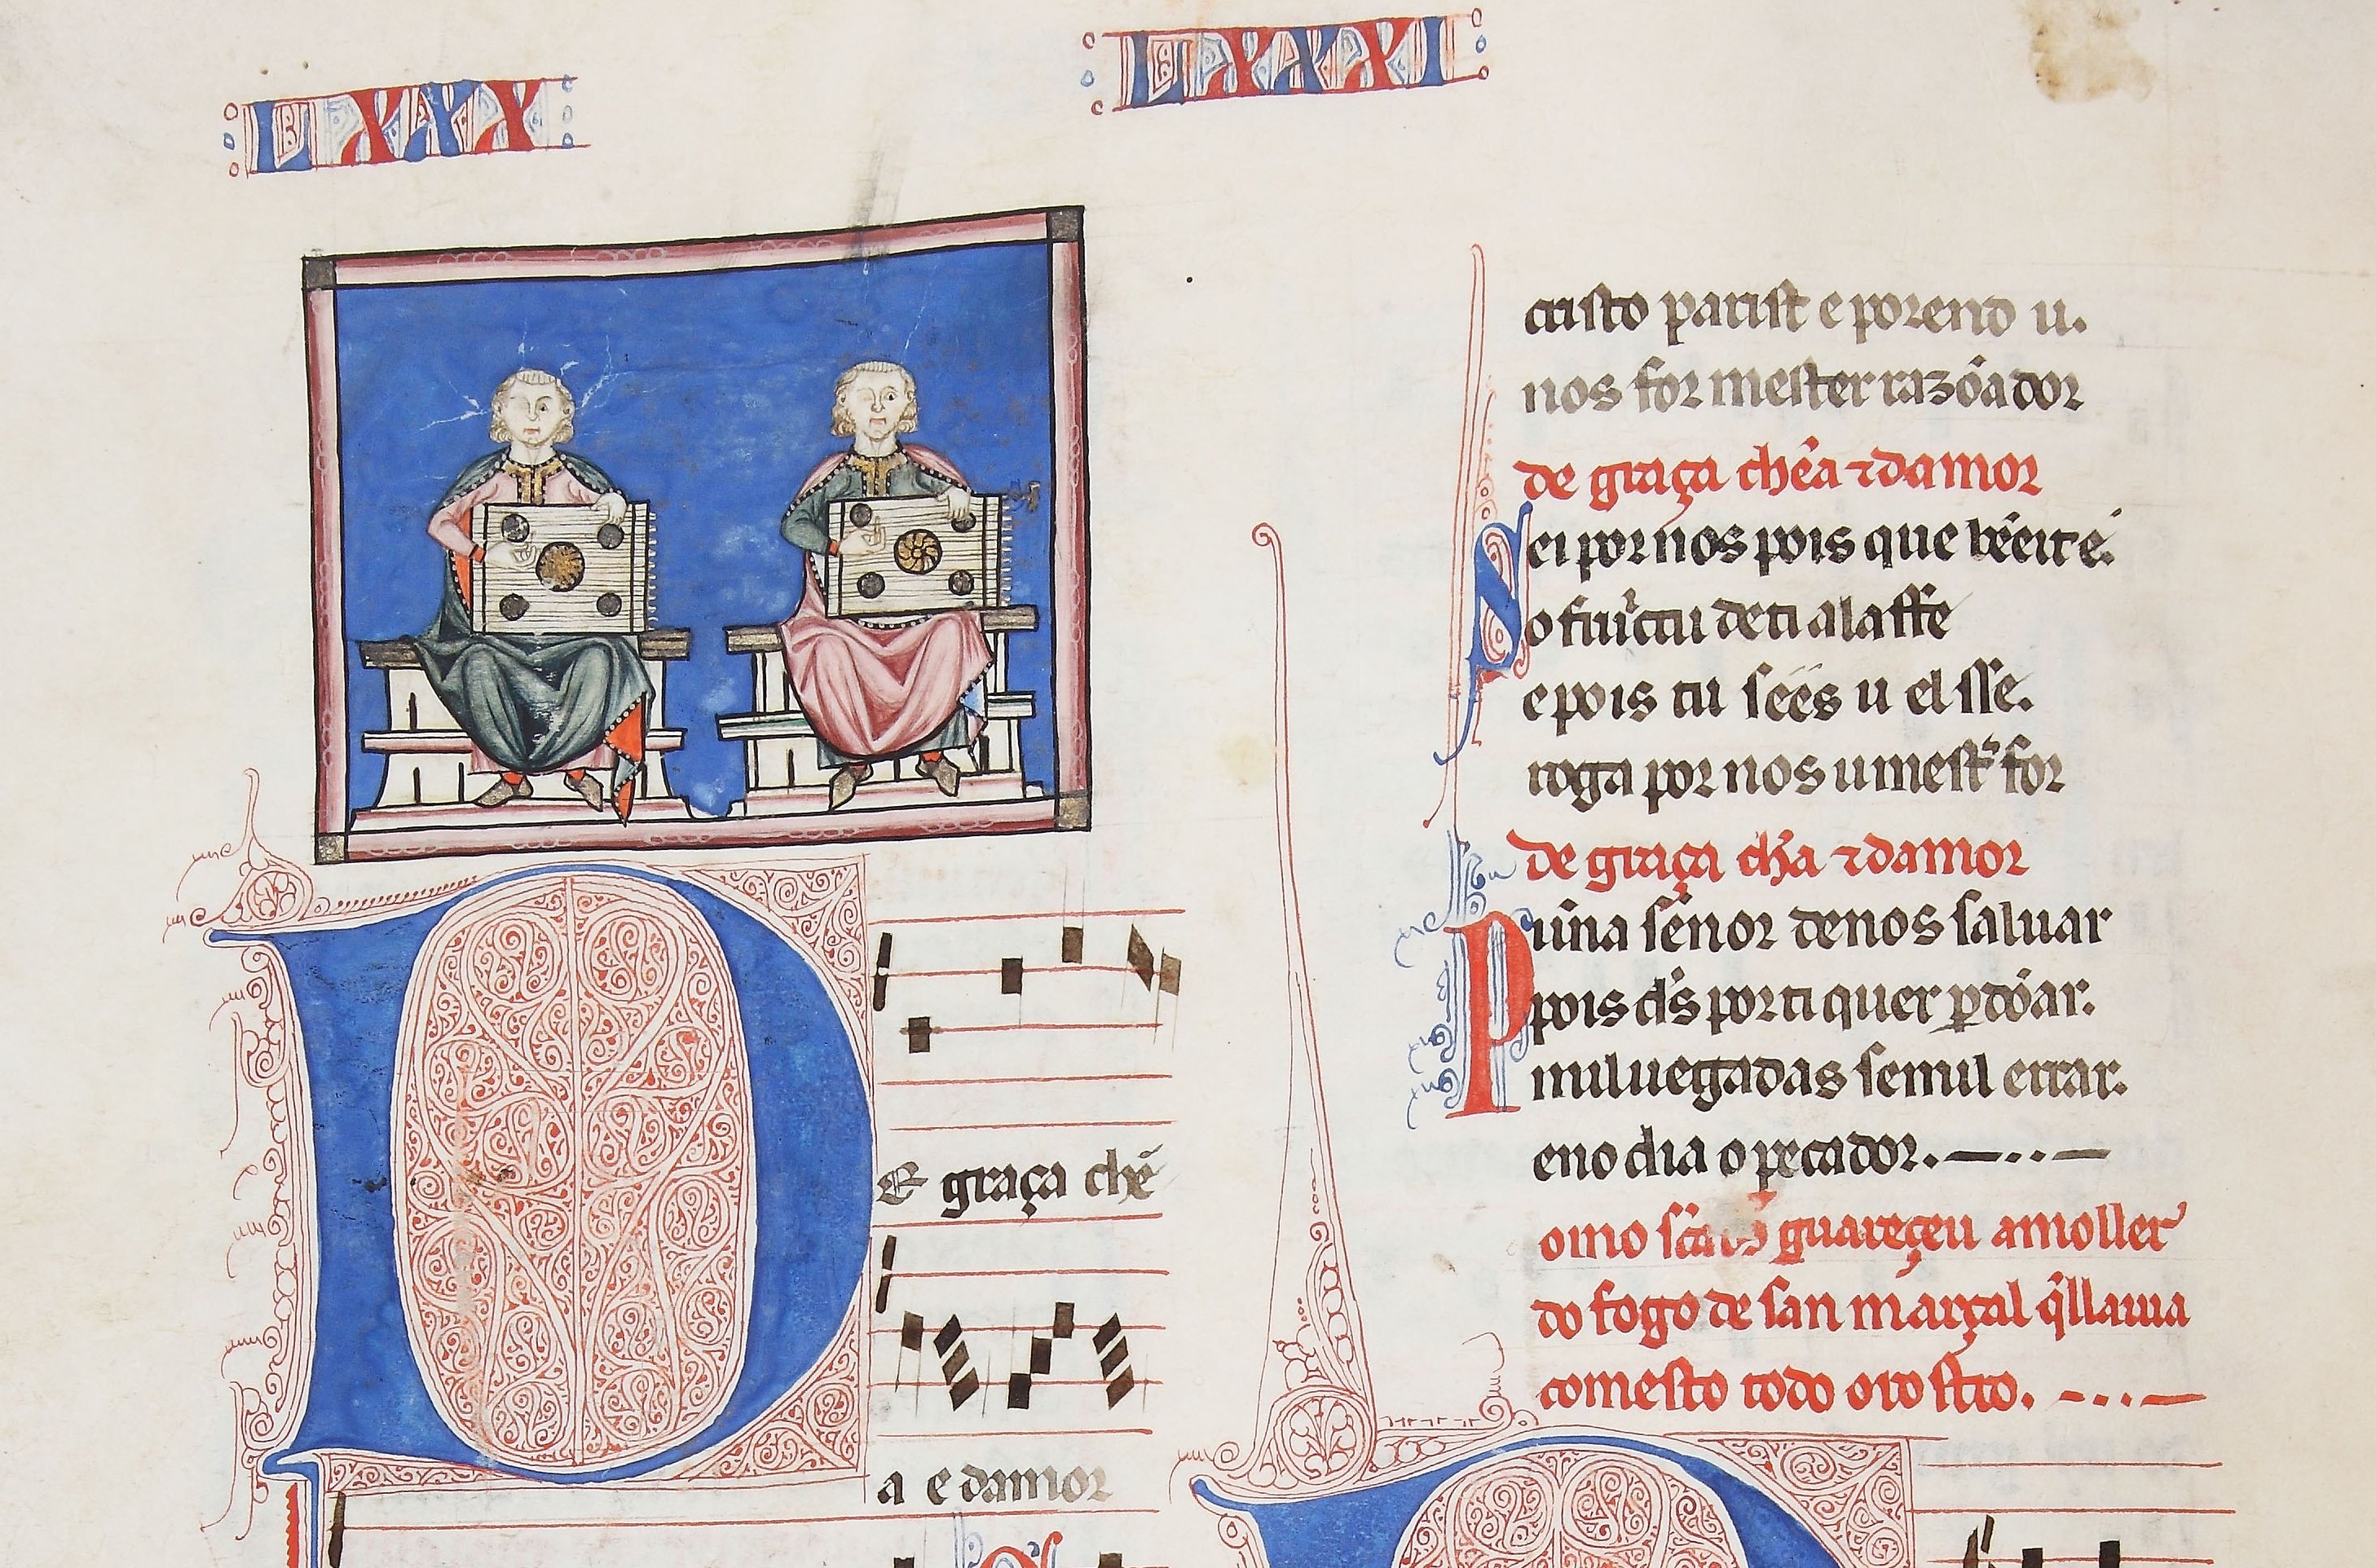 LXXX
LXXXI
E graça chẽ
a e damor
cristo parist e porend u.
nos for mester razõador
de graça chẽa ⁊ damor
Sei por nos pois que bẽeit é.
o fruito de ti a la ffe
e pois tu sees u el sse.
roga por nos u mest̉ for
de graça chẽa ⁊ damor
Puña señor de nos saluar
pois d̃s por ti quer ꝑdõar.
mil uegadas se mil errar.
eno dia o pecador.
omo guareçeu a moller
do fogo de san marçal q̃ ll auia
comesto todo o rostro.